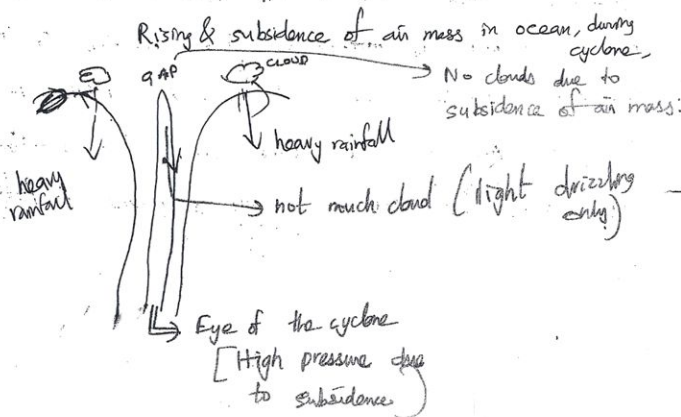 Rising & subsidence of air mass in ocean, during
cyclone,
GAP
CLOUD
No clouds due to
subsidence of air mass:
heavy rainfall
heavy
rainfall
not much cloud (light drizzling
only)
Eye of the cyclone
[High pressure due
to subsidence)